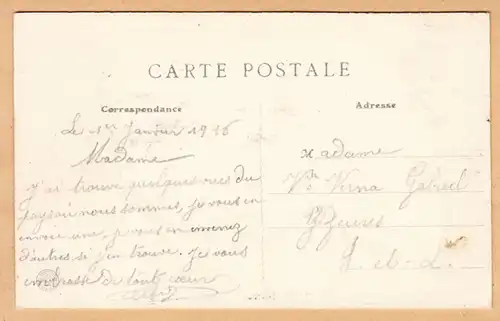 CARTE POSTALE
Correspondance
Adresse
Le 1er Janvier 1916
Madame
j'ai trouvé quelques vues du
pays où nous sommes, je vous en
envoie une, je vous en enverrez
d'autres si j'en trouve. Je vous
embrasse de tout cœur
Madame
Vve Verna Gabriel